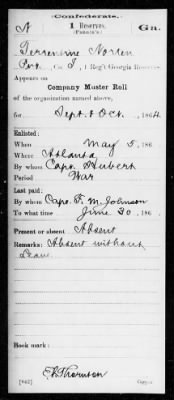 Confederate.
N 1 Reserves. Ga.
(Fannin's)
Norten
Pvt, Co. I, 1 Reg't Georgia Reserves.
Appears on
Company Muster Roll
of the organization named above,
for Sept & Oct, 1864
Enlisted:
When May 5, 186
Where Atlanta
By whom Capt. Hubert
Period War
Last paid:
By whom Capt. F. M. Johnson
To what time June 30, 186
Present or absent Absent
Remarks: Absent without
Leave
Book mark:
Thornton
(642) Copyist.